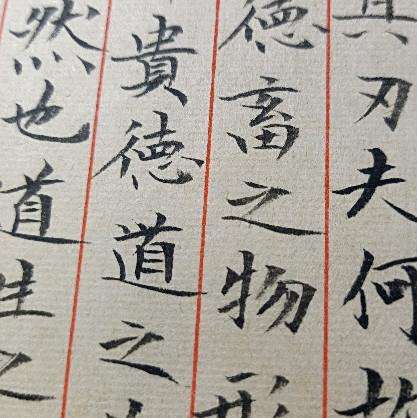 其刃夫何故
徳畜之物形
貴徳道之
然也道生之